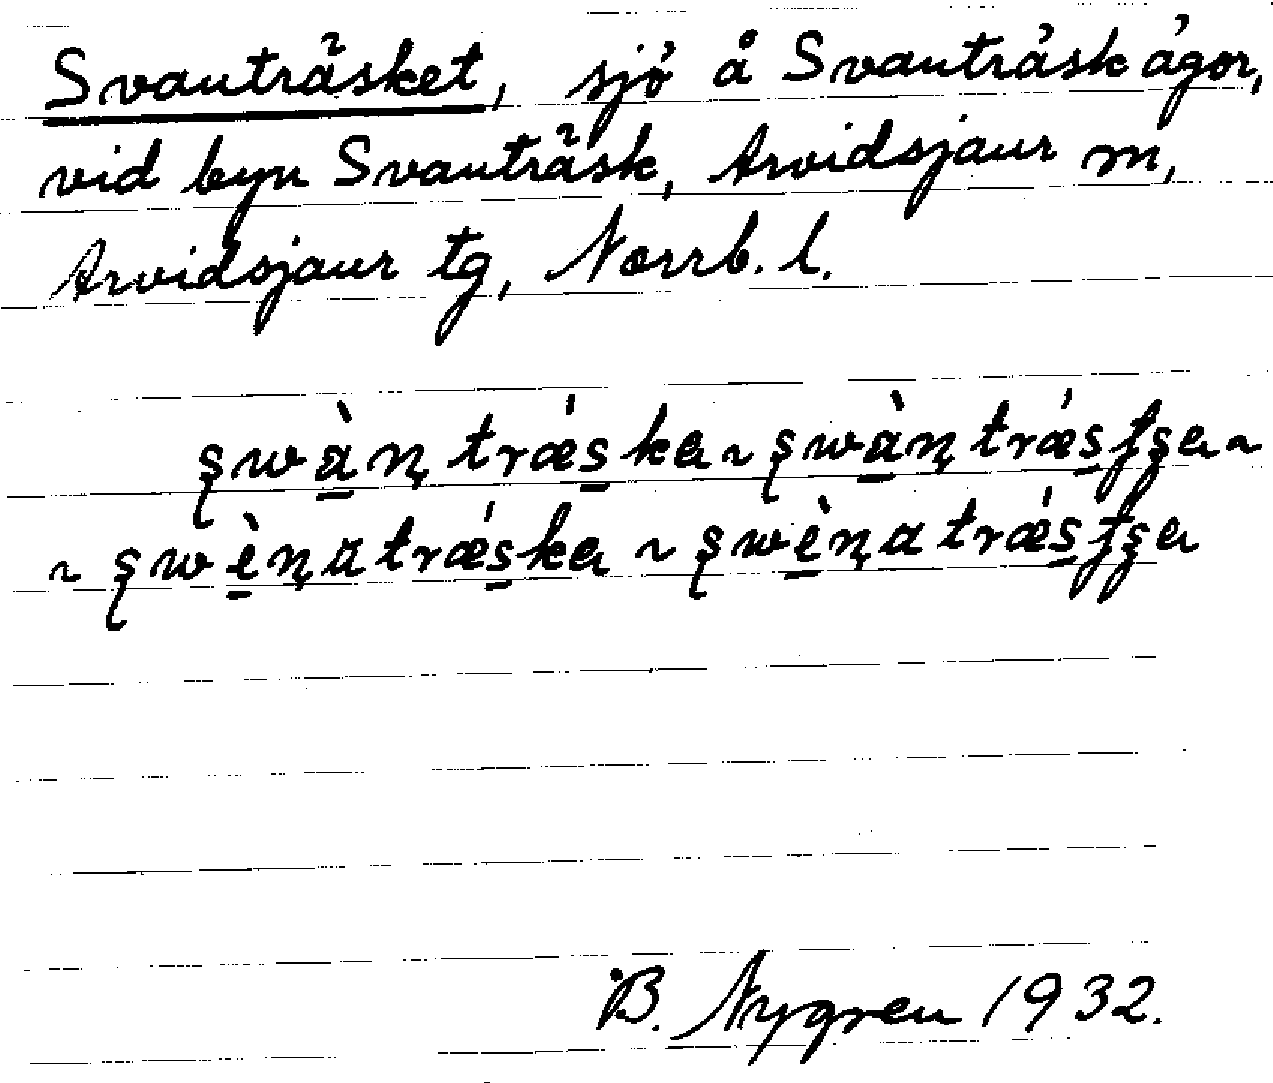 Svanträsket, sjö å Svanträsk ägor,
vid byn Svanträsk, Arvidsjaur sn,
Arvidsjaur tg, Norrb. l.
ʂwàṇ træ̀ska ~ ʂwàṇtrǽsʃʂa ~
~ ʂwèṇatrǽska ~ ʂwèṇatrǽsʃʂa
B. Nygren 1932.